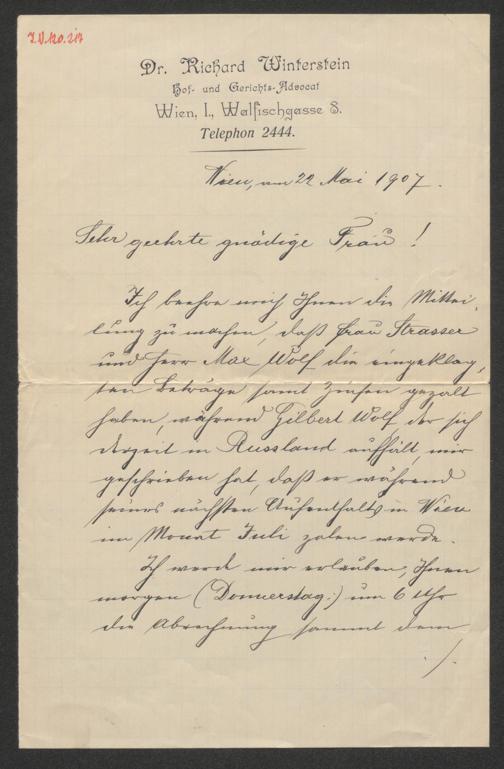 I.N. 120.217
Dr. Richard Winterstein
Hof- und Gerichts-Advocat
Wien, I., Walfischgasse 8.
Telephon 2444.
Wien, am 22 Mai 1907.
Sehr geehrte gnädige Frau!
Ich beehre mich Ihnen die Mittei-
lung zu machen, daß Frau Strasser
und Herr Max Wolf die eingeklag-
ten Beträge samt Zinsen gezalt
haben, während Gilbert Wolf, der sich
derzeit in Russland aufhält, mir
geschrieben hat, daß er während
seines nächsten Aufenthalts in Wien
im Monat Juli zalen werde.
Ich werde mir erlauben, Ihnen
morgen (Donnerstag:) um 6 Uhr
die Abrechnung sammt dem
./.